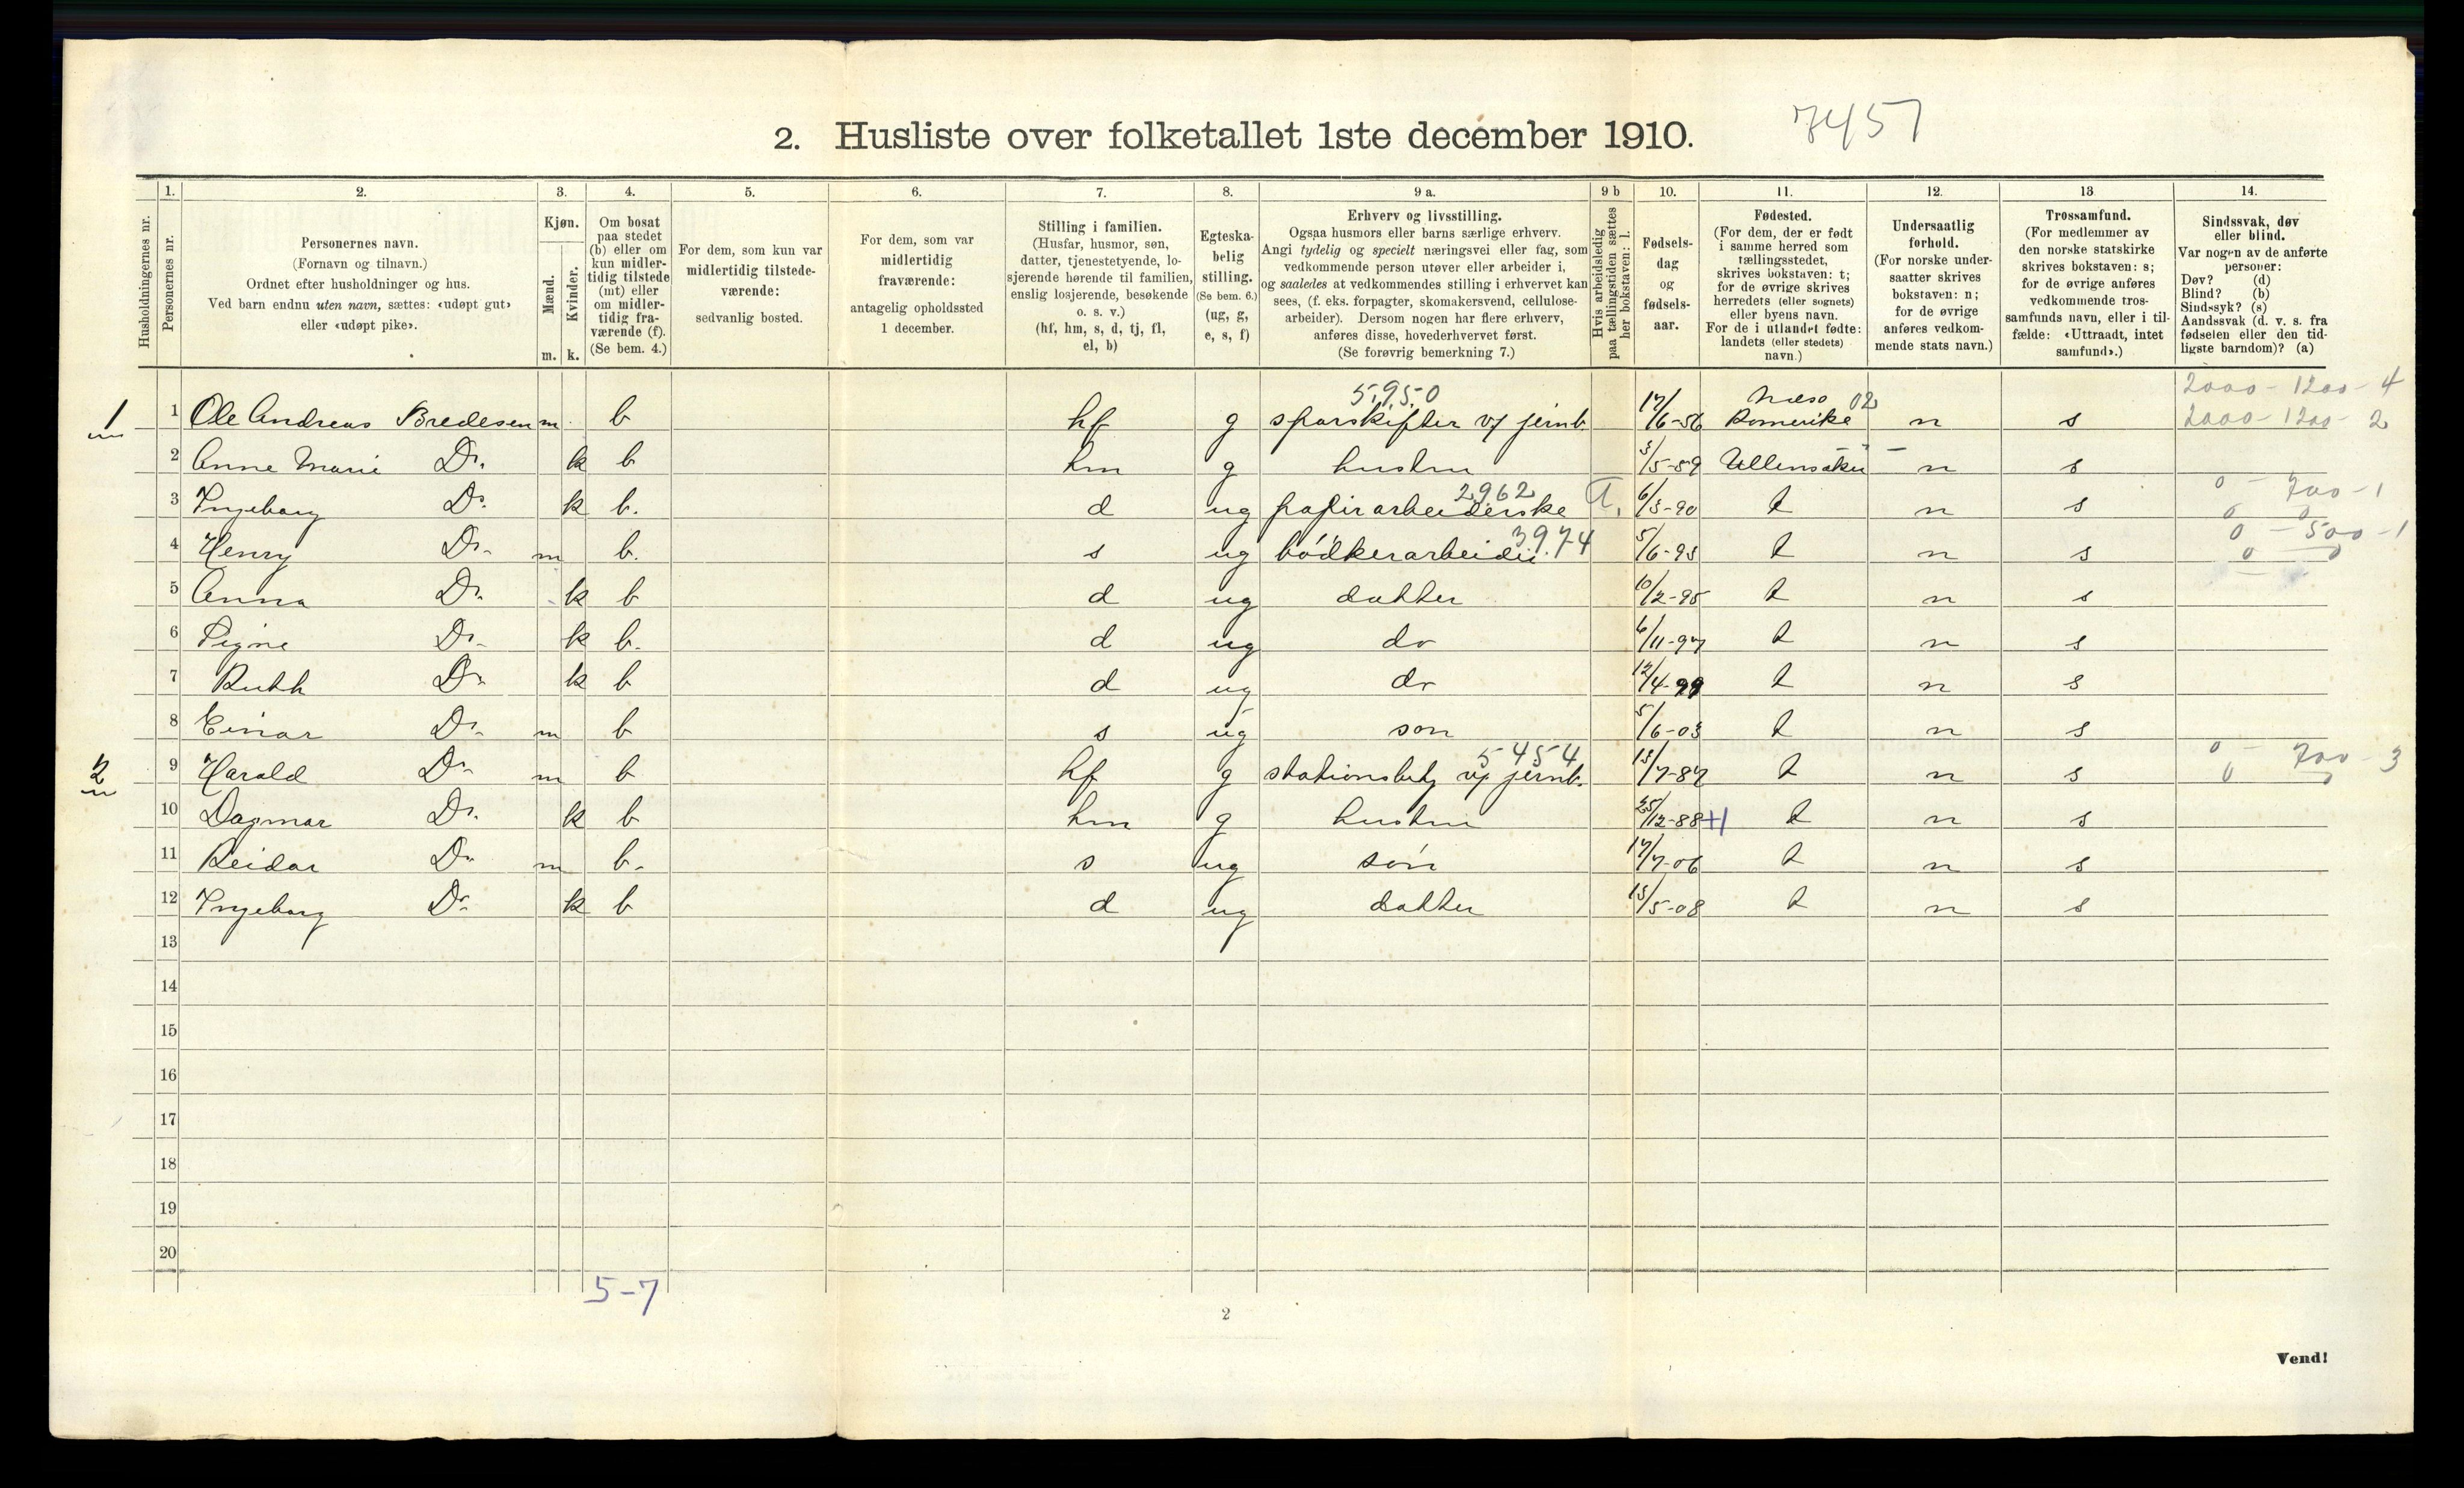 2. Husliste over folketallet 1ste december 1910. 7457
Husholdningernes nr.
1. Personernes nr.
2. Personernes navn. (Fornavn og tilnavn.) Ordnet efter husholdninger og hus. Ved barn endnu uten navn, sættes: «udøpt gut» eller «udøpt pike».
3. Kjøn. Mænd. m. Kvinder. k.
4. Om bosat paa stedet (b) eller om kun midlertidig tilstede (mt) eller om midlertidig fraværende (f). (Se bem. 4.)
5. For dem, som kun var midlertidig tilstedeværende: sedvanlig bosted.
6. For dem, som var midlertidig fraværende: antagelig opholdssted 1 december.
7. Stilling i familien. (Husfar, husmor, søn, datter, tjenestetyende, losjerende hørende til familien, enslig losjerende, besøkende o. s. v.) (hf, hm, s, d, tj, fl, el, b)
8. Egteskabelig stilling. (Se bem. 6.) (ug, g, e, s, f)
9 a. Erhverv og livsstilling. Ogsaa husmors eller barns særlige erhverv. Angi tydelig og specielt næringsvei eller fag, som vedkommende person utøver eller arbeider i, og saaledes at vedkommendes stilling i erhvervet kan sees, (f. eks. forpagter, skomakersvend, cellulosearbeider). Dersom nogen har flere erhverv, anføres disse, hovederhvervet først. (Se forøvrig bemerkning 7.)
9 b Hvis arbeidsledig paa tællingstiden sættes her bokstaven: l.
10. Fødselsdag og fødselsaar.
11. Fødested. (For dem, der er født i samme herred som tællingsstedet, skrives bokstaven: t; for de øvrige skrives herredets (eller sognets) eller byens navn. For de i utlandet fødte: landets (eller stedets) navn.)
12. Undersaatlig forhold. (For norske undersaatter skrives bokstaven: n; for de øvrige anføres vedkommende stats navn.)
13 Trossamfund. (For medlemmer av den norske statskirke skrives bokstaven: s; for de øvrige anføres vedkommende trossamfunds navn, eller i tilfælde: «Uttraadt, intet samfund».)
14. Sindssvak, døv eller blind. Var nogen av de anførte personer: Døv? (d) Blind? (b) Sindssyk? (s) Aandssvak (d. v. s. fra fødselen eller den tidligste barndom)? (a)
5950 Næs 02 2000 - 1200 - 4
1 1 Ole Andreas Bredesen m b hf g sporskifter v/ jernb. 17/6-56 Romerike n s 2000 - 1200 - 2
2 Anne Marie Do. k b hm g hustru 3/5-59 Ullensaker n s
2962 0 - 700 - 1
3 Ingeborg Do. k b. d ug papirarbeiderske 6/3-90 t n s 0 0
3974 0 - 500 - 1
4 Henry Do. m b. s ug bödkerarbeider 5/6-93 t n s 0 0
5 Anna Do. k b d ug datter 10/2-95 t n s
6 Signe Do. k b. d ug do 6/11-97 t n s
7 Ruth Do. k b d ug do 12/4-99 t n s
8 Einar Do. m b s ug son 5/6-03 t n s
5454 0 - 700 - 3
2 9 Harald Do. m b hf g stationsbetj v/ jernb. 13/7-87 t n s 0 0
10 Dagmar Do. k b hm g hustru 25/12-88 +1 t n s
11 Reidar Do. m b. s ug son 17/7-06 t n s
12 Ingeborg Do. k b d ug datter 13/5-08 t n s
13
14
15
16
17
18
19
20
5-7
2
Vend!